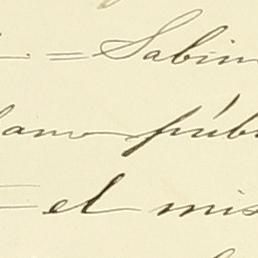 . = Sabin
lano públ
= el mis